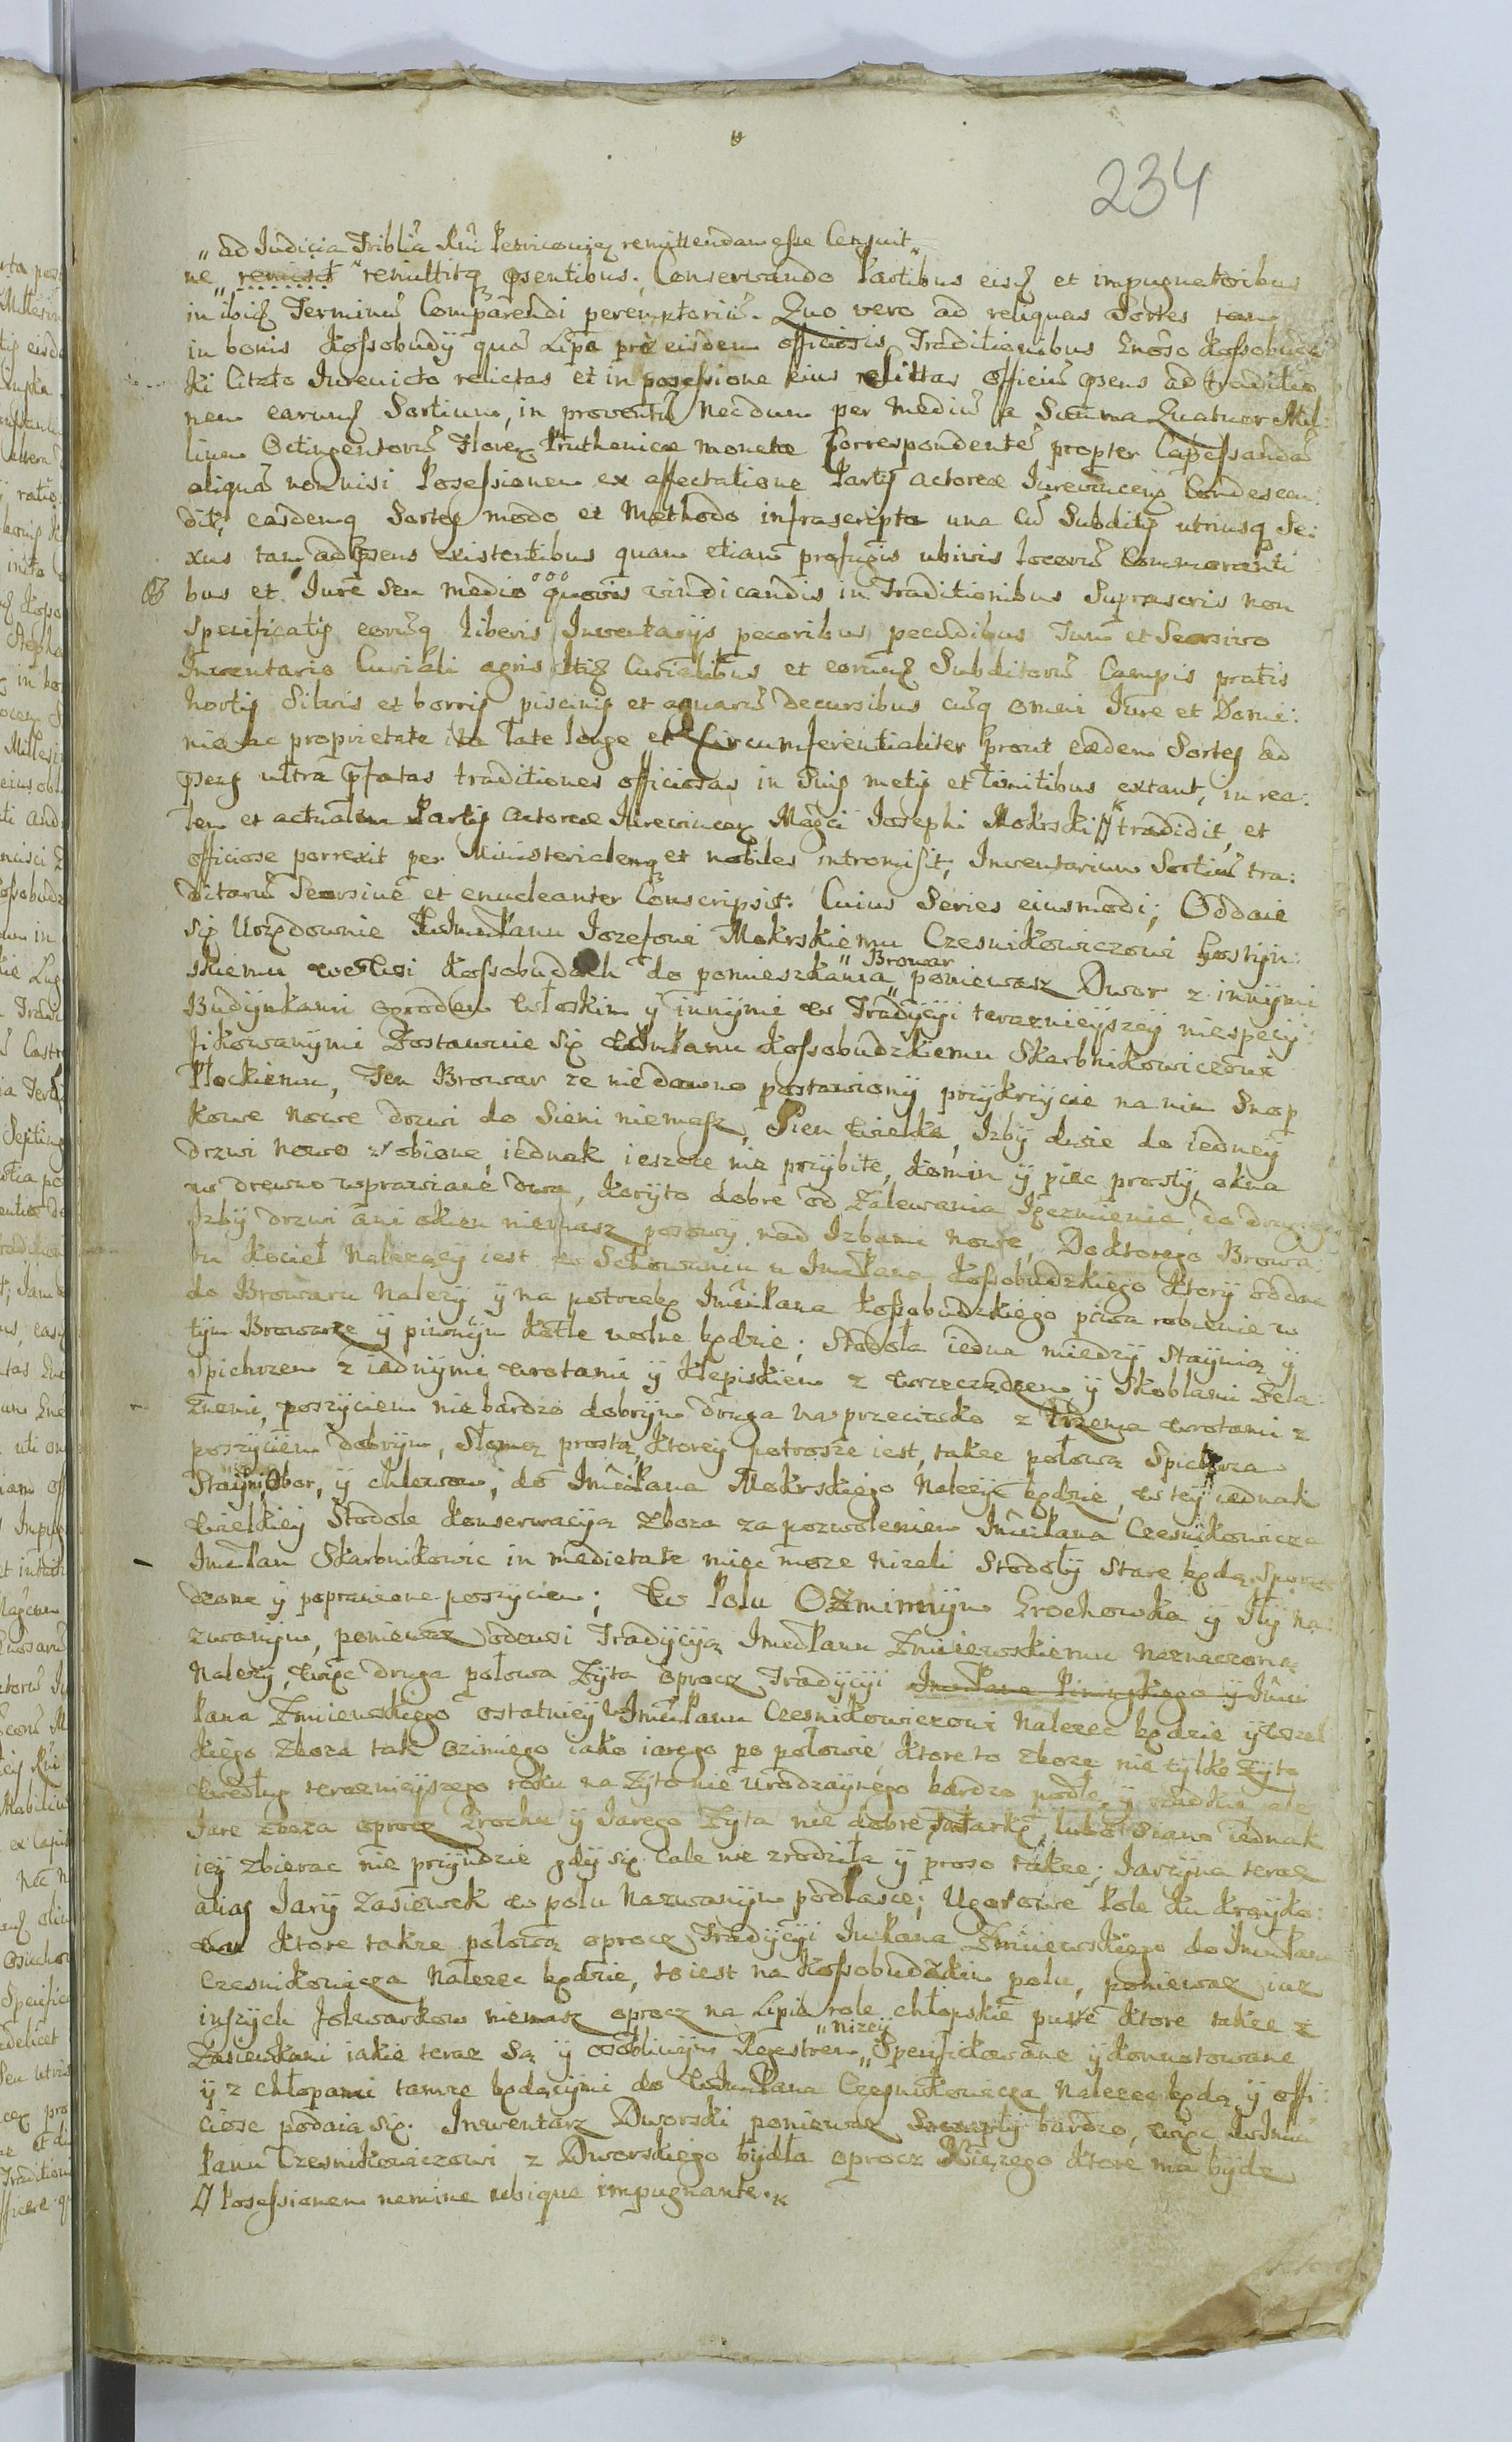 234
„ad Judicia Triblia Rni Petricoviẽ remittendam esse Censuit„
ne „remisit„ remittitq p̃sentibus. Conservando Partibus eisq̃ et impugnatoribus
in ibiq̃ Terminũ Comparendi peremptoriũ. Quo vero ad reliquas Sortes tam
in bonis Kossobudÿ quã Lipa prò eisdem officiosis Traditionibus Gnôso Kossobudz
ki Citato Jurevicto relictas et in possessione eius relittas officiũ p̃sens ad traditio
nem earumq̃ Sortium, in proventũ necdum per mediũ a Summa Quatuor Mil:
lium Octingentorũ Floreñ Pruthenicæ monetæ Correspondentẽ propter Capessandã
aliquã nonnisi Possessionem ex affectatione Partis actoreæ Jurevinceñ Condescen:
dit, easdemq̃ Sortes modo et Methodo infrascripta una cũ Subditis utriusq̃ Se:
xus tam ad p̃sens existentibus quam etiam profugis ubivis locorũ Commoranti
bus et Jure seu medio quovis vindicandis in Traditionibus Suprascris non
Specificatis eorũq̃ liberis Inventarijs pecoribus pecudibus Tum et Seorsivo
Inventario Curiali agris itiq̃ Curialibus et eorumq̃ Subditorũ Campis pratis
hortis Silvis et borris piscinis et aquarũ decursibus cũq̃ omni Jure et Domi:
nio ac proprietate ita late longe et Circumferentialiter prout eædem Sortes ad
p̃sens ultra p̃fatas traditiones officiosas in Suis metis et limitibus extant, in rea:
lem et actualem Partis Actoreæ Jurevinceñ Magci Josephi Mokrski # tradidit, et
officiose porrexit per Ministerialemq̃ et nobiles intromisit, Inventarium Sortiũ tra:
ditarũ Seorsive et enucleanter Conscripsit. Cuius Series eiusmodi; Oddaie
się Urzędownie JmPanu Jozefowi Mokrskiemu Czesnikowiczowi
skiemu we Wsi Kossobudach do pomieszkania „Browar„ poniewasz Dwor z innÿmi
Budÿnkami ogrodem Włoskim ÿ innÿmi w Tradÿcÿi teraznieÿszeÿ niespecÿ:
fikowanÿmi Zostawuie się JmPanu Kossobudzkiemu Skarbnikowiczowi
Płockiemu, Ten Browar ze niedawno postawionÿ przÿkrÿcie na nim Snop
kowe nowe drzwi do Sieni niemasz, Sien wielka, Izbÿ dwie do iedneÿ
drzwi nowo zrobione, iednak ieszcze nie przÿbite, Komin ÿ piec prostÿ, okna
w drewno wprawiane dwa, Korÿto dobre od Zalewania Jęczmienia, do drugieÿ
Izbÿ drzwi ani okien niemasz posowÿ nad Izbami nowe, Do ktorego Browa:
ru Kocieł należącÿ iest w Schowaniu u JmPana Kossobudzkiego Ktorÿ oddac
do Browaru należÿ ÿ na potrzebę JmPana Kossobudzkiego piwa robienie w
tÿm Browarze ÿ piwnÿm Kotle wolne będzie; Stodoła iedna miedzÿ Staÿnią ÿ
Spichrzem z iednÿmi wrotami ÿ Klepiskiem z wrzecządzem ÿ Skoblami Zela:
znemi, poszÿciem niebardzo dobrÿm druga na przeciwko z trzema wrotami z
poszÿciem dobrÿm, Słomą prostą, Ktoreÿ potrosze iest, takze połową Spichrza
Staÿni, Obor, ÿ chlewow, do JmPana Mokrskiego należec będzie, w teÿ iednak
Wielkieÿ Stodole Konserwacÿą Zboza za pozwoleniem JmPana Czesnikowicza
JmPan Skarbnikowic in medietate miec moze nizeli Stodołÿ Stare będą Sporzą
dzone ÿ poprawione poszÿciem; W Polu Ozimnÿm Grochowka ÿ Iłÿ na:
zwanÿm, poniewaz Tradÿcÿą JmPanu Zmiiewskiemu naznaczona
należÿ, więc druga połowa Zÿta oprocz Tradÿcÿi JmPana Pininskiego ÿ Jm
Pana Zmiewskiego ostatnieÿ JmPanu Czesnikowiczowi należec będzie ÿ wszel
kiego zboza tak ozimiego iako iarego po połowie, Ktore to zboze nie tÿlko Zÿto
według teraznieÿszego roku na Zÿto nie urodzaÿnego bardzo podłe ÿ rzadkie ale
Jare zboza oprocz Grochu ÿ Jarego Zÿta nie dobre, tatarkę lubo Siano iednak
ieÿ zbierac nie prziÿdzie gdÿ się Cale nie zrodziła ÿ proso także; Jarzÿna teraz
alias Jarÿ zasiewek w polu nazwanÿm podlasce; Ugorowe Pole Ku Kraÿko:
wu Ktore takze połową oprocz Tradÿcÿi JmPana Zmiiewskiego do JmPana
Czesnikowicza należec będzie, to iest na Kossobudzkim polu, poniewaz iuz
inszÿch folwarkow niemasz oprocz na Lipie role chłopskie puste Ktore takze z
Zasiewkami iakie teraz Są ÿ osobliwÿm Regestrem „nizeÿ„ Specifikowane ÿ konnotowane
ÿ z chłopami tamze będącÿmi do JmPana Czesnikowicza należec będą ÿ offi:
ciose podaią się. Inwentarz Dworski poniewaz Szczupłÿ bardzo, więc Jm
Panu Czesnikowiczowi z Dworskiego bÿdła oprocz Xięzego Ktore ma bÿdz
# Possessionem nemine ubique impugnante.„